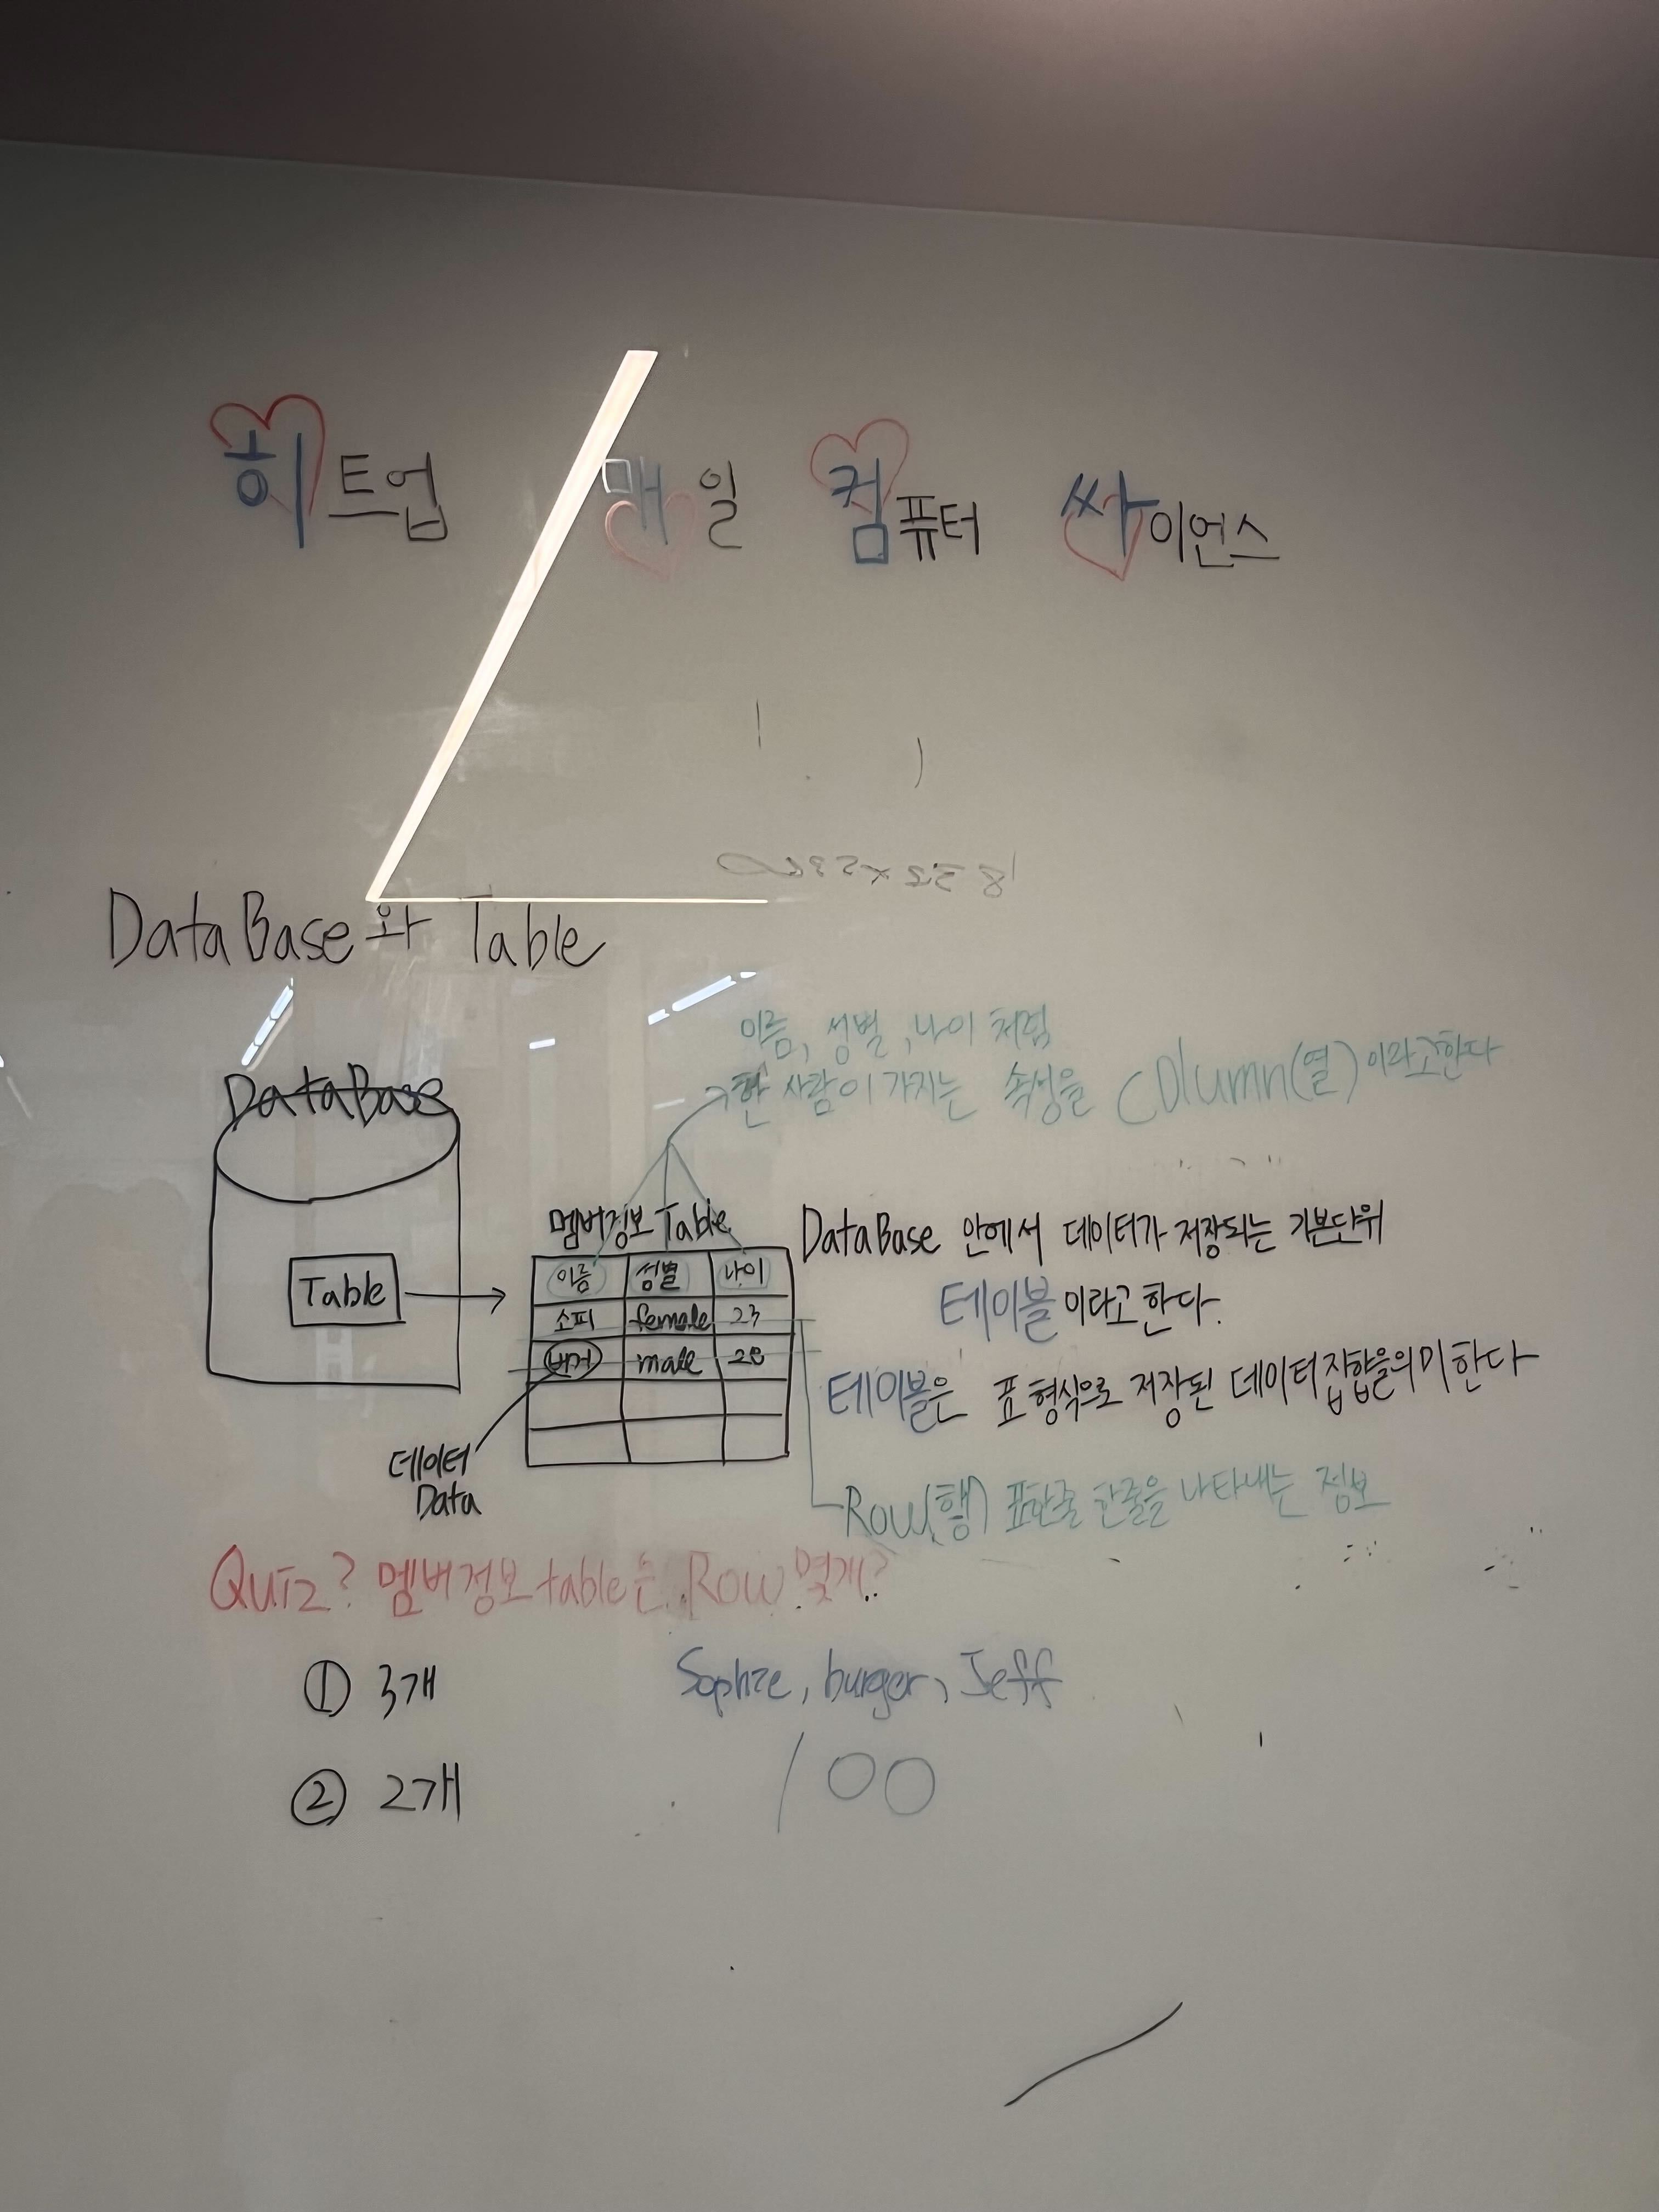 히트업 매일 컴퓨터 싸이언스
DataBase와 Table
이름, 성별, 나이 처럼
한 사람이 가지는 속성을 Column(열)이라고한다
DataBase
Table
멤버정보 Table
이름 성별 나이
소피 female 23
버거 male 28
데이터
Data
DataBase 안에서 데이터가 저장되는 기본단위
테이블이라고 한다.
테이블은 표 형식으로 저장된 데이터집합을의미한다
Row(행) 표한줄 한줄을 나타내는 정보
Quiz? 멤버정보 table은 Row 몇개?
① 3개
② 2개
Sophie, burger, Jeff
100